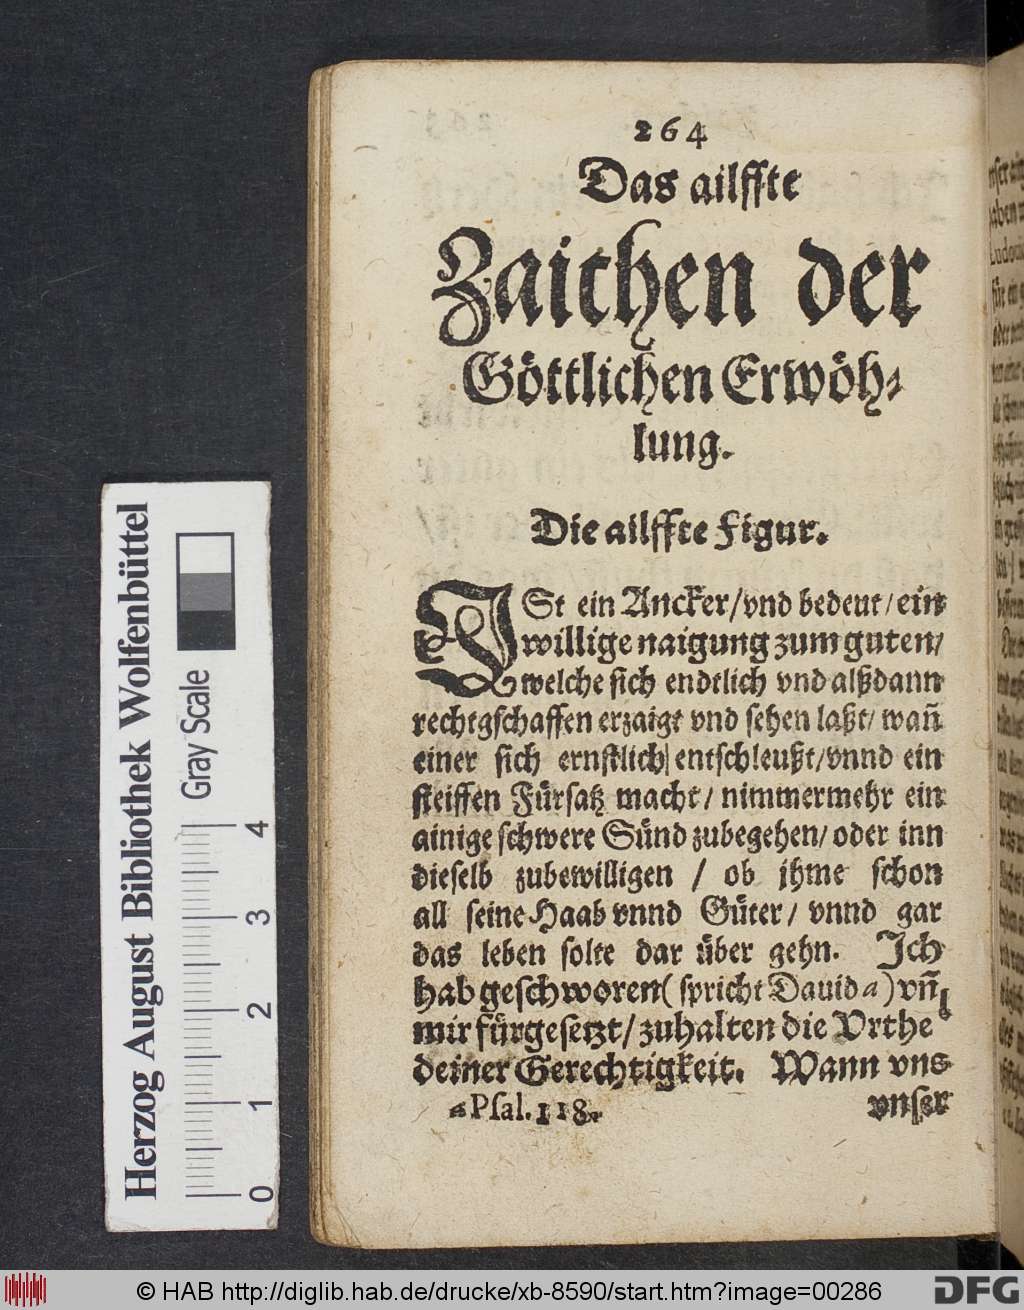 264
Das ailffte
Zaichen der
Göttlichen Erwöh⸗
lung.
Die ailffte Figur.
ISt ein Ancker/vnd bedeut/ein
willige naigung zum guten/
welche sich endtlich vnd alßdann
rechtgschaffen erzaigt vnd sehen laßt/wañ
einer sich ernstlich entschleußt/vnnd ein
steiffen Fürsatz macht/nimmermehr ein
ainige schwere Sünd zubegehen/oder inn
dieselb zubewilligen / ob jhme schon
all seine Haab vnnd Güter/ vnnd gar
das leben solte dar über gehn. Ich
hab geschworen (spricht Dauid a) vñ
mir fürgesetzt/zuhalten die Vrthel
deiner Gerechtigkeit. Wann vns
a Psal. 118.
vnser
Herzog August Bibliothek Wolfenbüttel
Gray Scale
0 1 2 3 4
© HAB http://diglib.hab.de/drucke/xb-8590/start.htm?image=00286
DFG